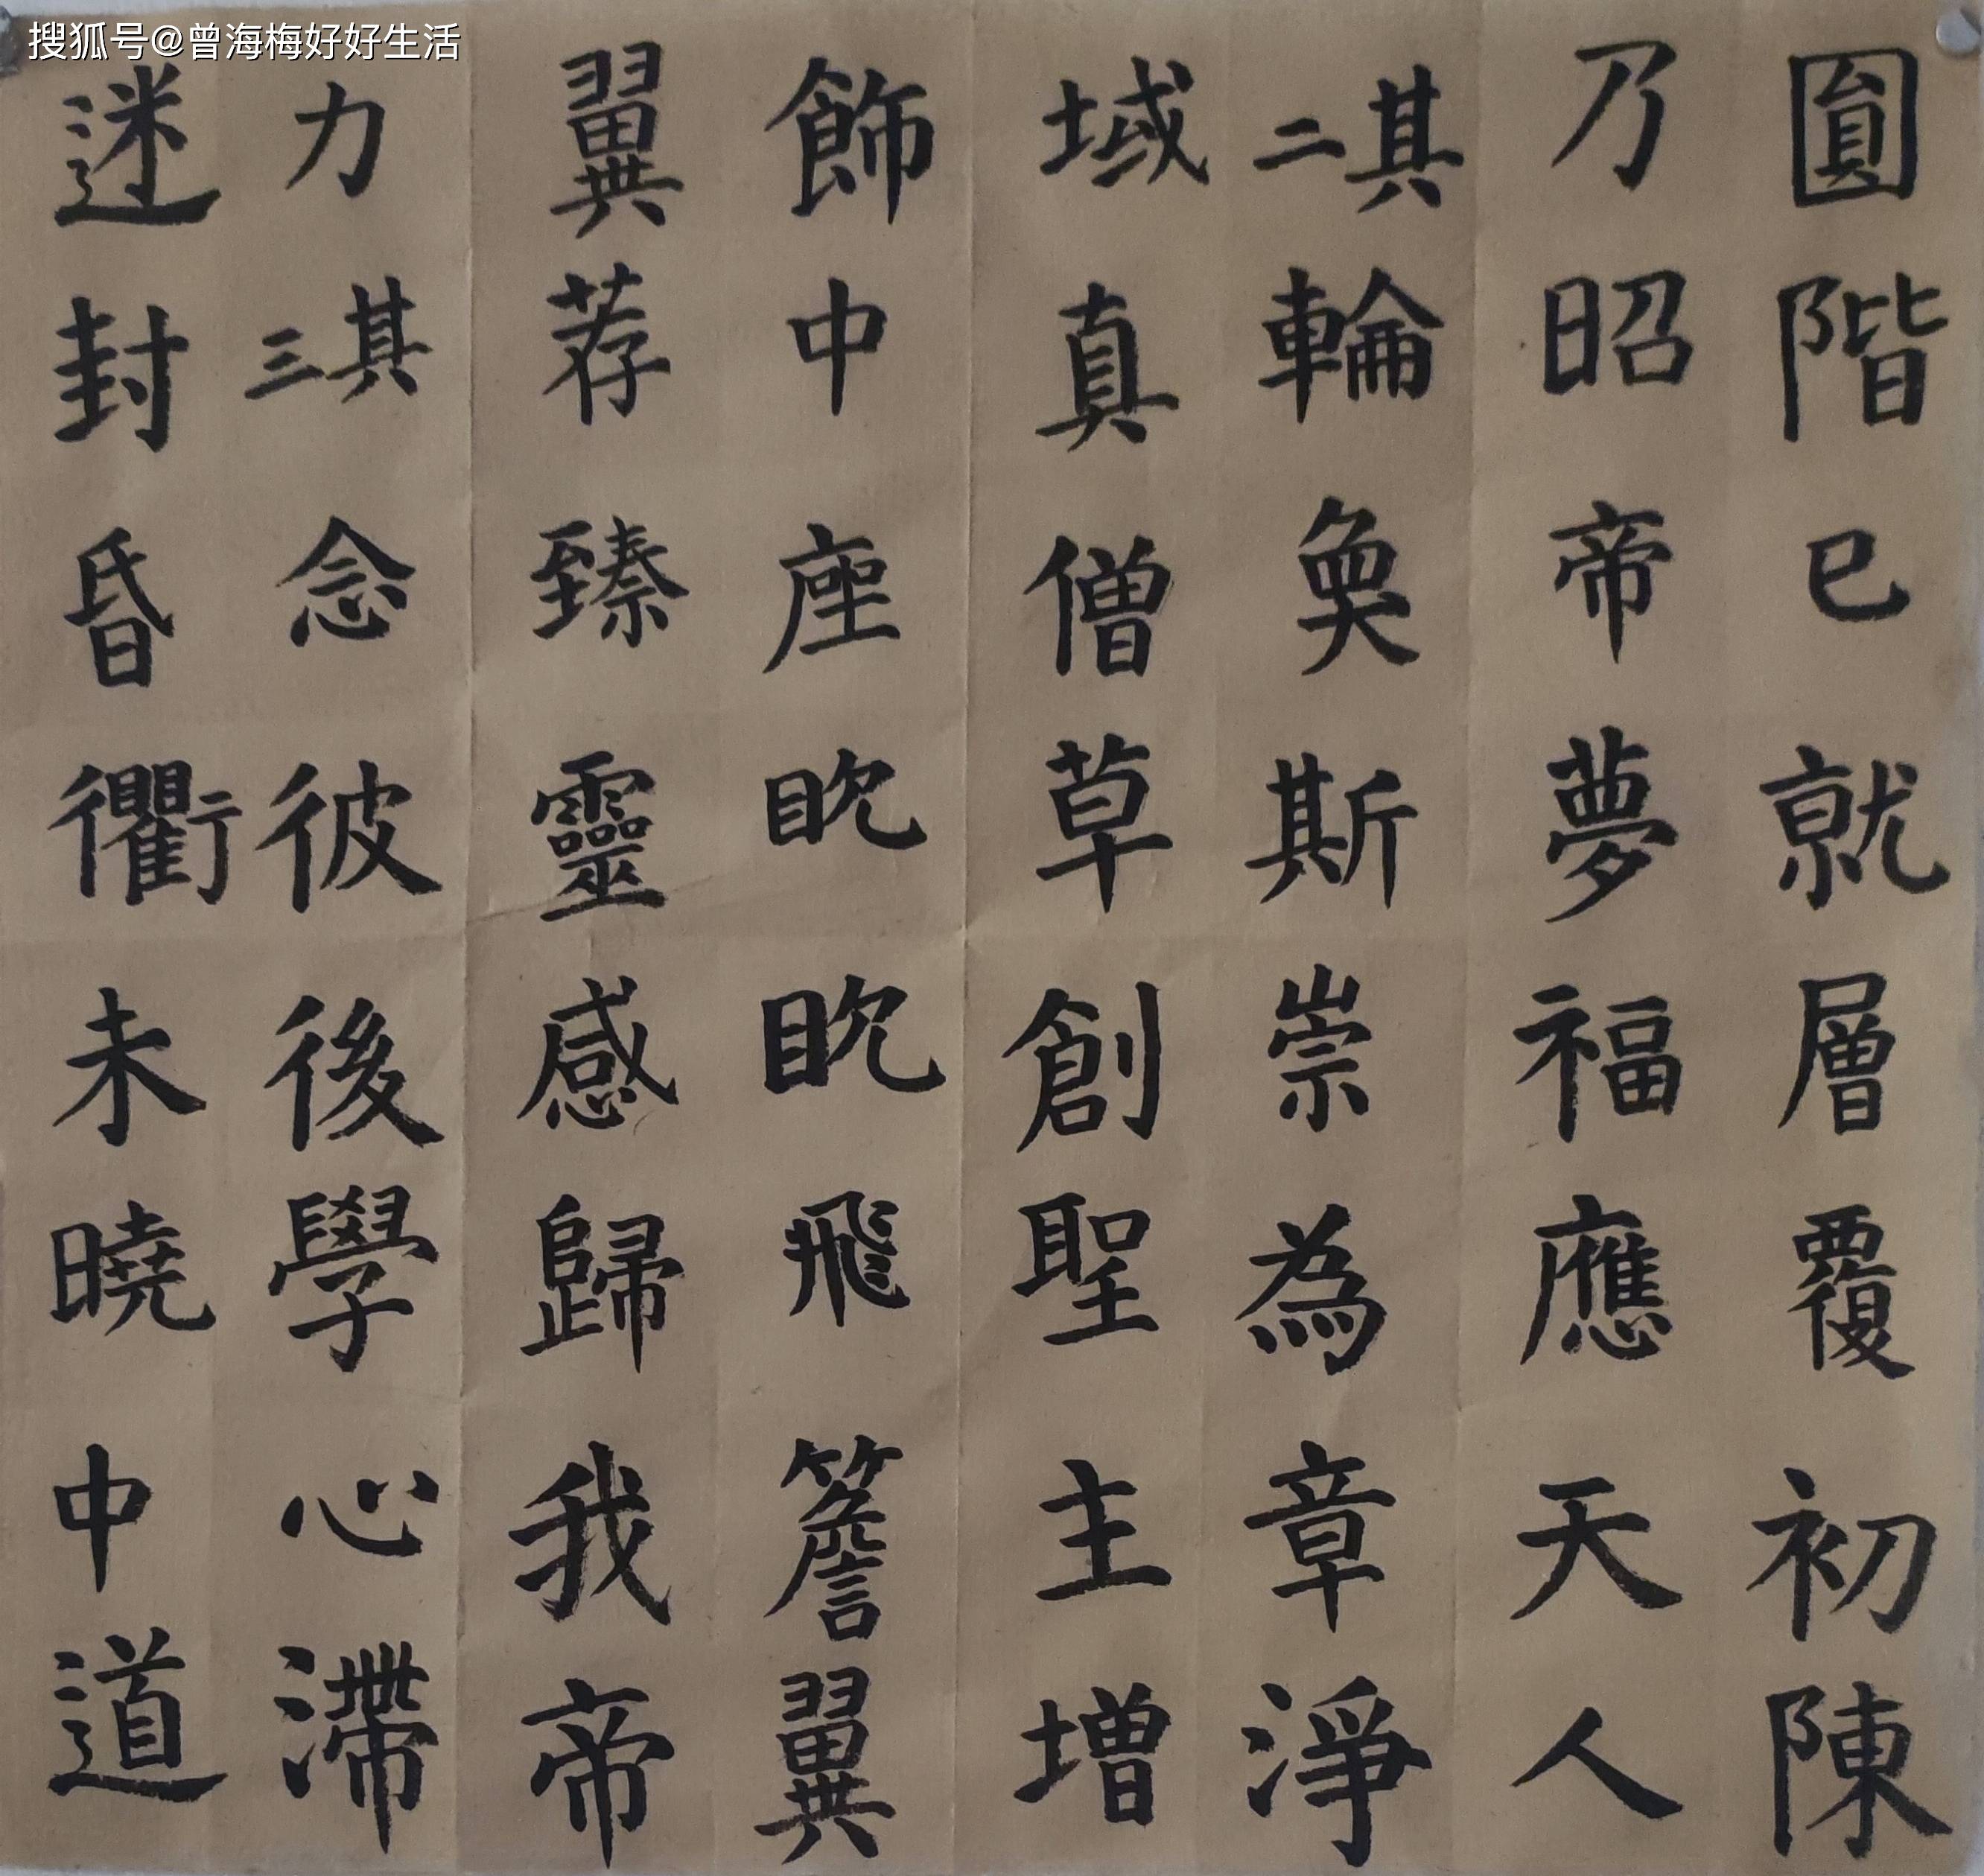 搜狐号@曾海梅好好生活
圓階已就層覆初陳
乃昭帝夢福應天人
其二輪奐斯崇為章淨
域真僧草創聖主增
飾中座眈眈飛簷翼
翼荐臻靈感歸我帝
力其三念彼後學心滯
迷封昏衢未曉中道